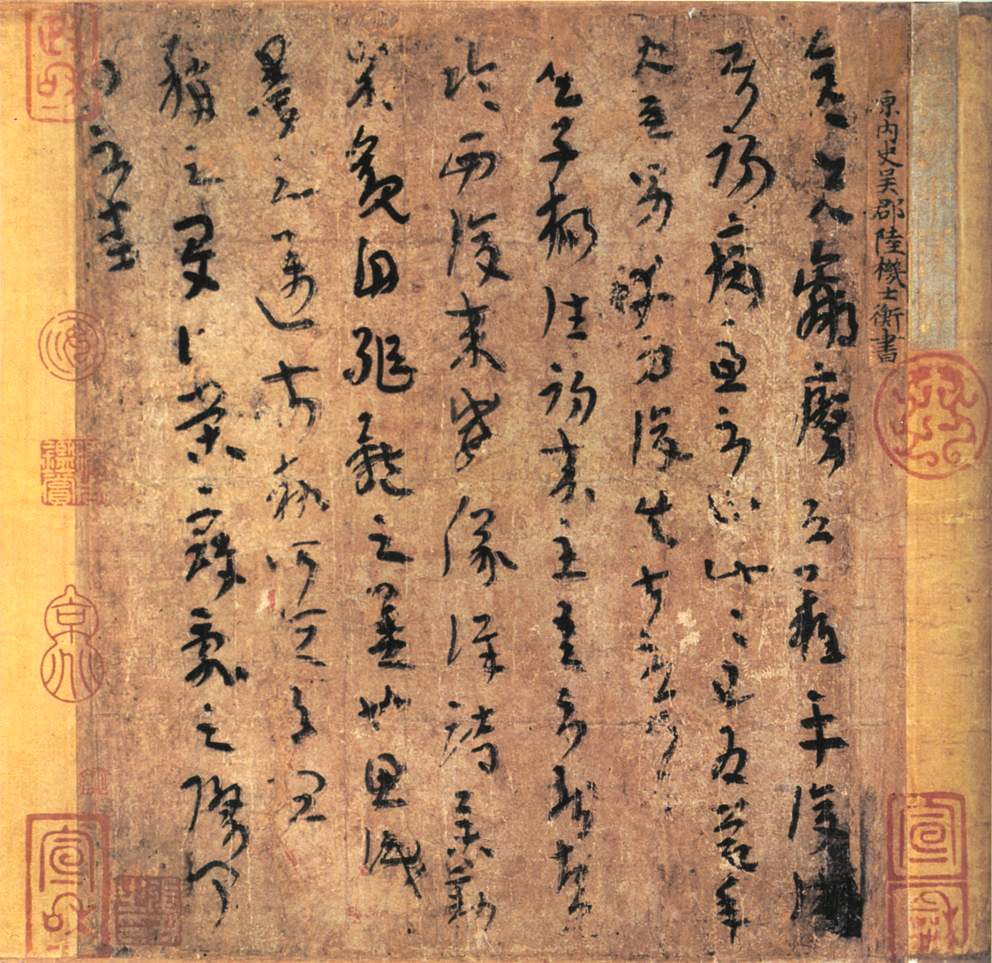 原內史吳郡陸機士衡書
彦先羸瘵恐難平復往
屬初病慮不止此此已為慶承
使唯男幸為復失前憂耳
吳子楊往初來主吾不能盡
臨西復來威儀詳跱舉動
成觀自軀體之美也思識
量之邁前執所恒有宜
稱之夏伯榮寇亂之際聞
問不悉
宣和
政和